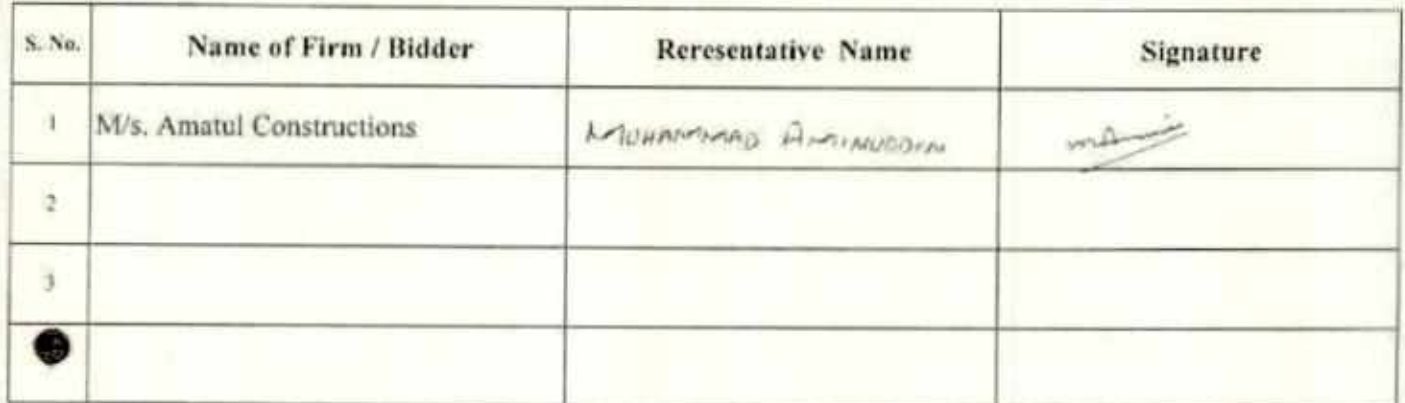 S. No. Name of Firm / Bidder Reresentative Name Signature
1 M/s. Amatul Constructions MUHAMMAD AMINUDDIN
2
3